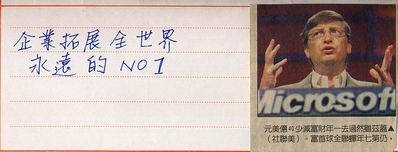 企業拓展全世界
永遠的NO1
Microsoft
▲蓋茲雖然過去一年財富減少40億美元
，仍第七年蟬聯全球首富。（美聯社）